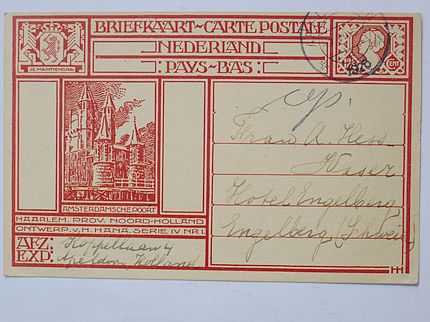 BRIEFKAART~CARTE POSTALE
NEDERLAND
PAYS-BAS
JE MAINTIENDRAI
CENT
cp.
Frau A. Hess
Kaser
Hotel Engelberg
Engelberg (Schweiz)
AMSTERDAMSCHE POORT
HAARLEM. PROV. NOORD-HOLLAND
ONTWERP. v. H. HANA. SERIE IV NR I.
AFZ:
EXP:
Koppellaan 4
Apeldoorn Holland